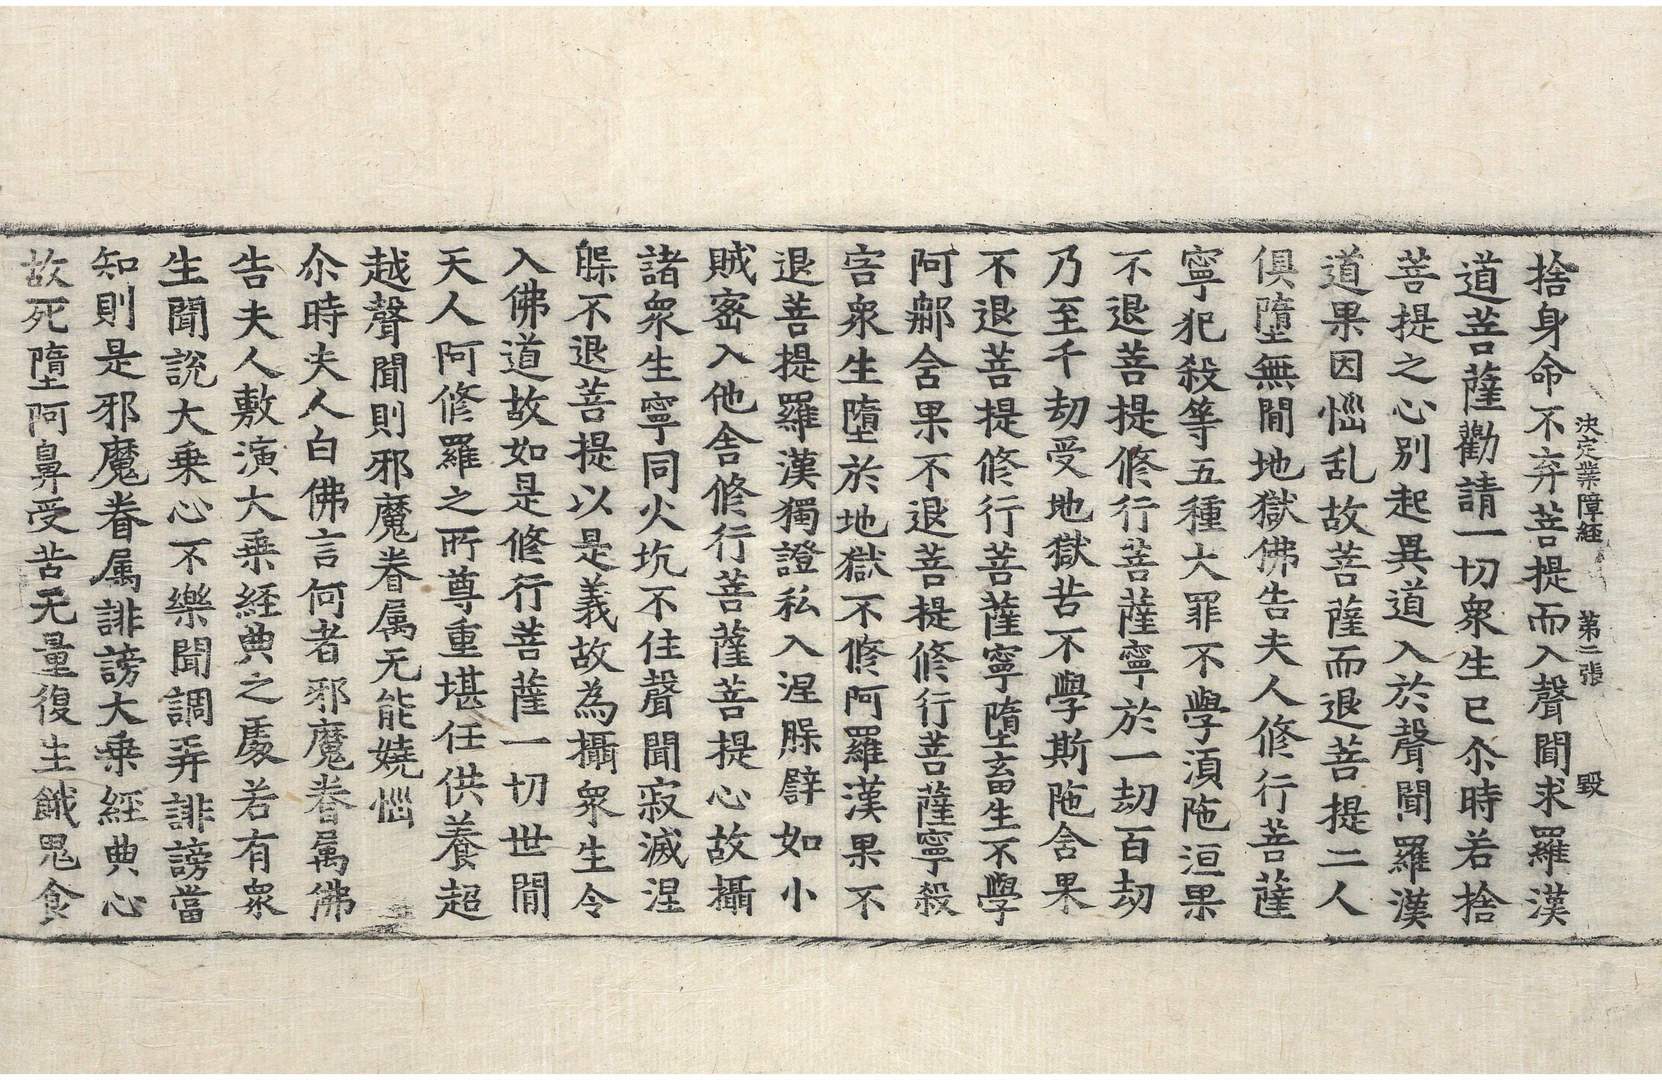 決定業障經 第二張 毀
捨身命不弃菩提而入聲聞求羅漢
道菩薩勸請一切衆生已尒時若捨
菩提之心別起異道入於聲聞羅漢
道果因惱乱故菩薩而退菩提二人
俱墮無間地獄佛告夫人修行菩薩
寧犯殺等五種大罪不學湏陁洹果
不退菩提修行菩薩寧於一劫百劫
乃至千劫受地獄苦不學斯陁含果
不退菩提修行菩薩寧墮畜生不學
阿那含果不退菩提修行菩薩寧殺
害衆生墮於地獄不修阿羅漢果不
退菩提羅漢獨證私入涅槃譬如小
賊密入他舍修行菩薩菩提心故攝
諸衆生寧同火坑不住聲聞寂滅涅
槃不退菩提以是義故為攝衆生令
入佛道故如是修行菩薩一切世間
天人阿修羅之所尊重堪任供養超
越聲聞則邪魔眷属无能嬈惱
尒時夫人白佛言何者邪魔眷属佛
告夫人敷演大乗經典之處若有衆
生聞說大乗心不樂聞調弄誹謗當
知則是邪魔眷属誹謗大乗經典心
故死墮阿鼻受苦无量復生餓鬼食